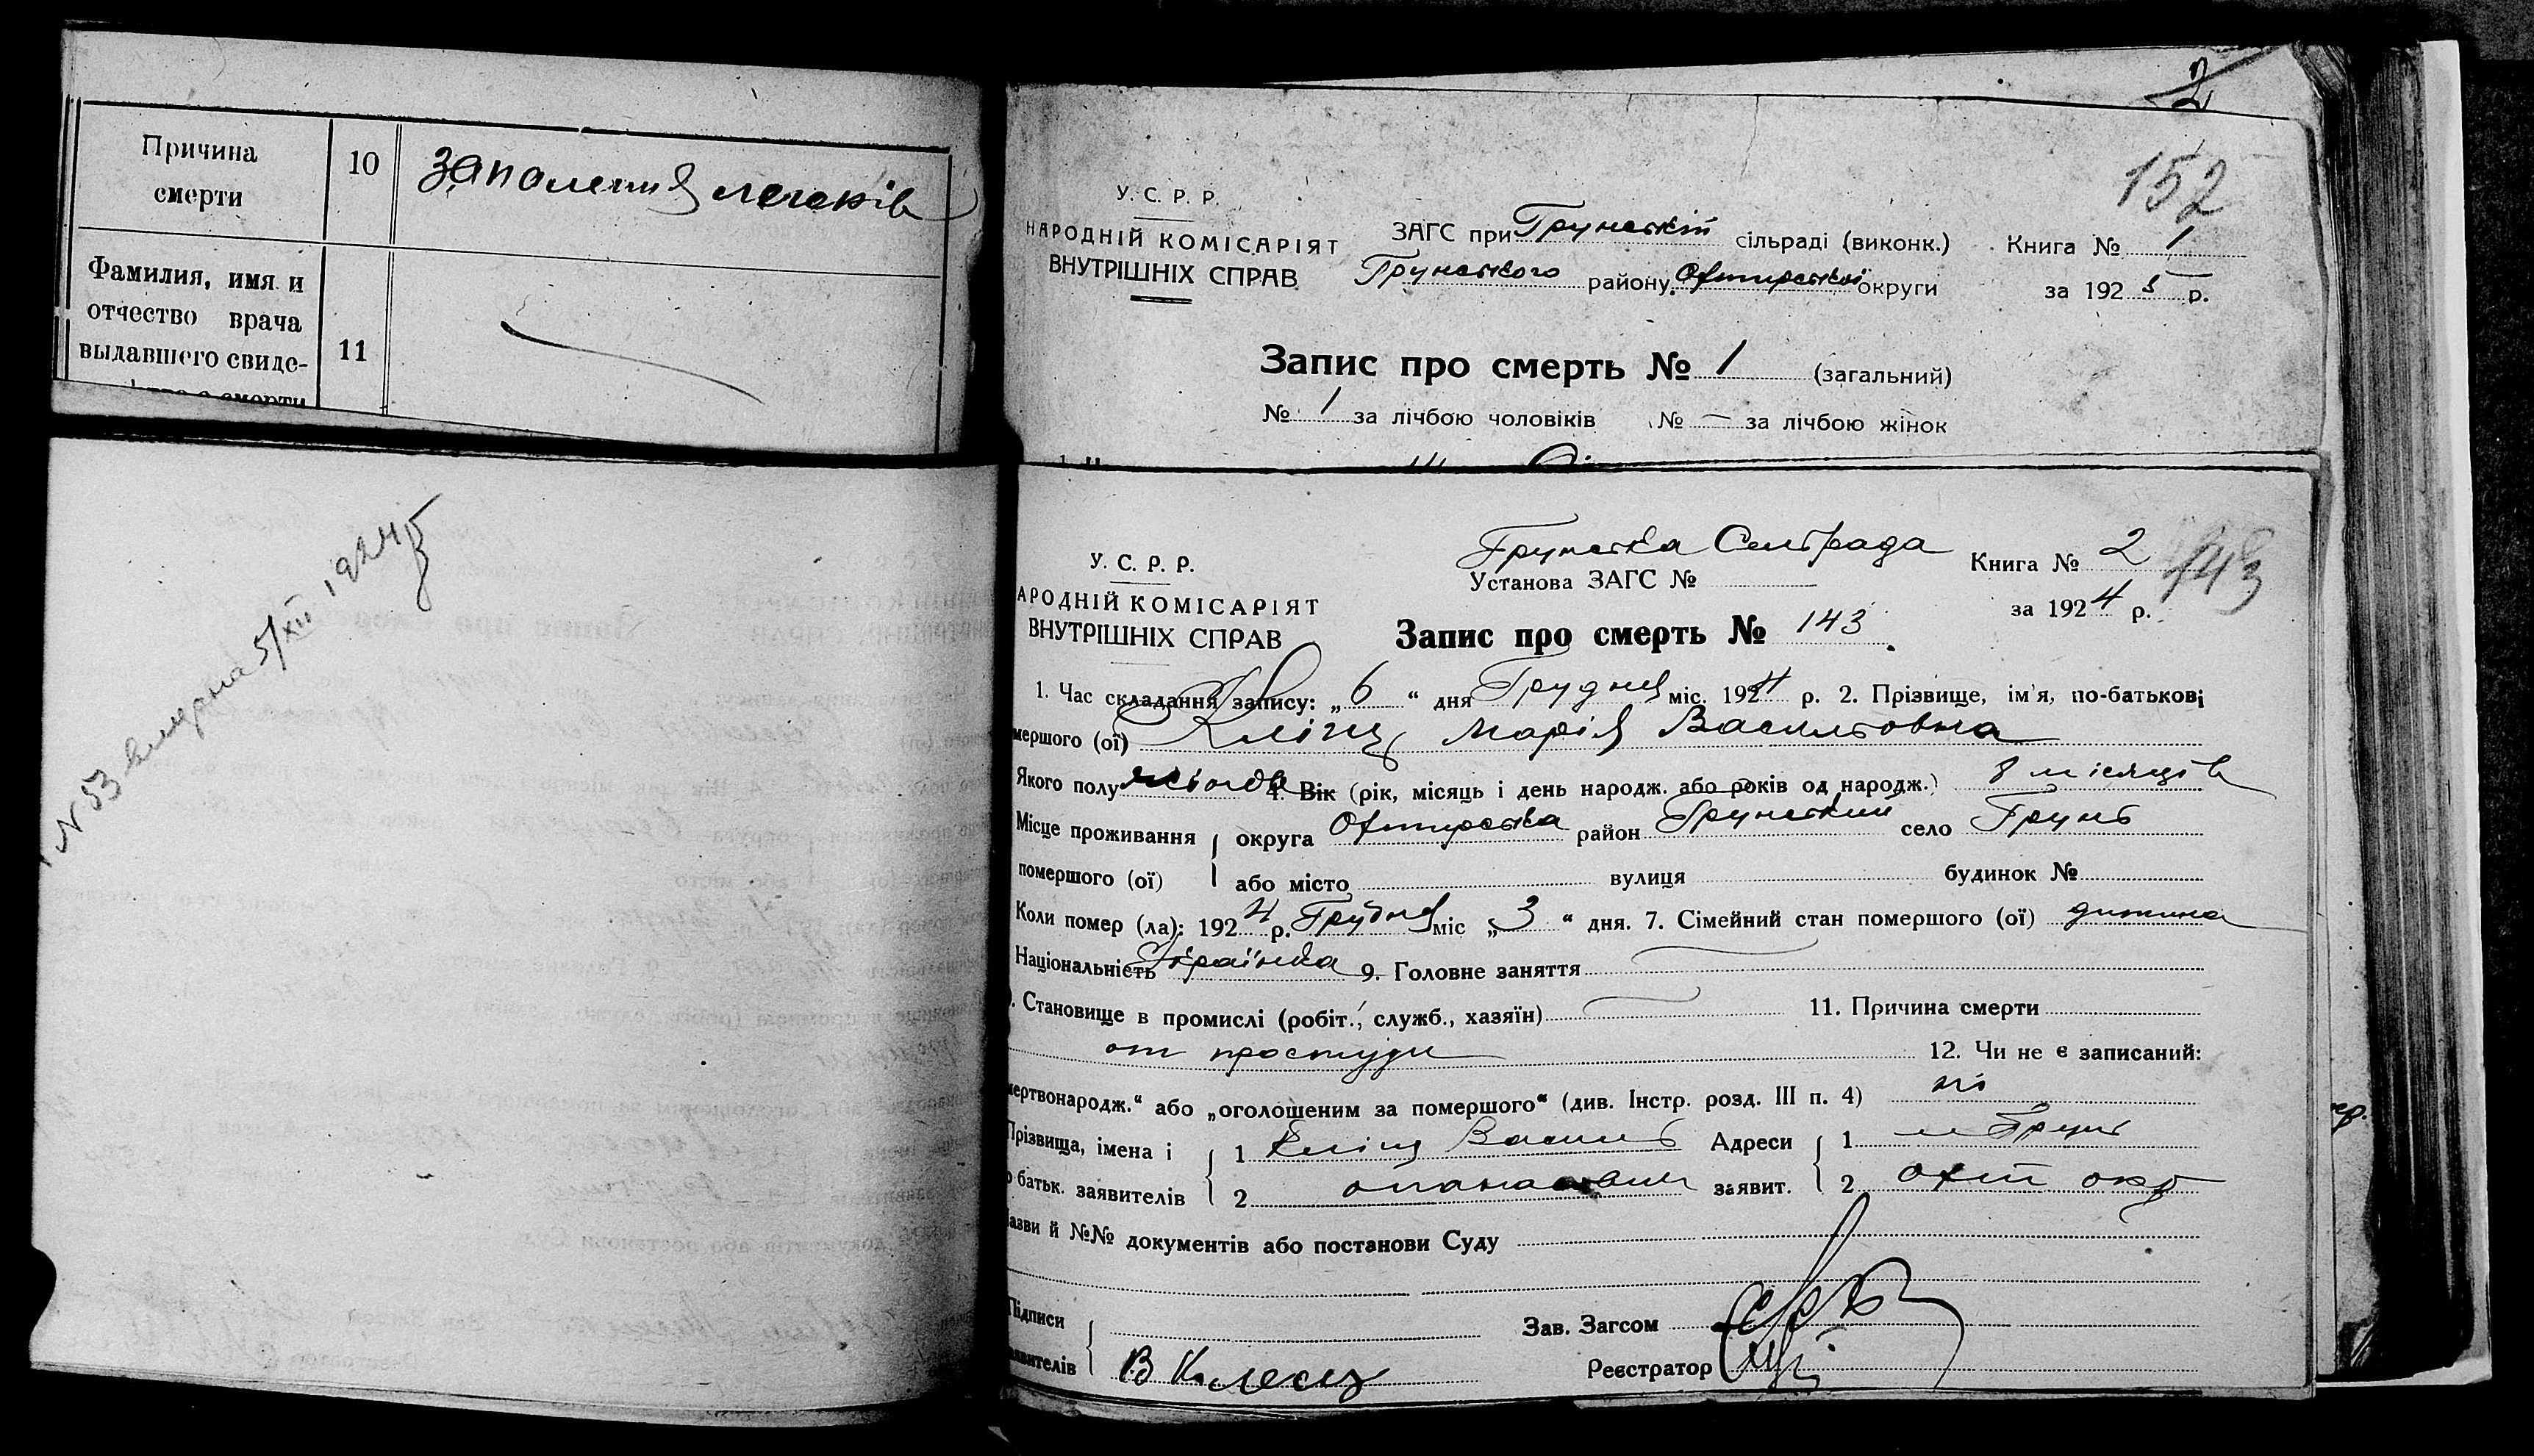 Причина
смерти
10
запаления легеків
Фамилия, имя и
отчество врача
выдавшего свиде-
11
2
152
У. С. Р. Р.
НАРОДНІЙ КОМІСАРІЯТ
ВНУТРІШНІХ СПРАВ
ЗАГС при Грунській сільраді (виконк.)
Грунського району Охтирської округи
Книга № 1
за 1925 р.
Запис про смерть № 1 (загальний)
№ 1 за лічбою чоловіків № — за лічбою жінок
N 53 вмерла 5/XII 1924 р
У. С. Р. Р.
АРОДНІЙ КОМІСАРІЯТ
ВНУТРІШНІХ СПРАВ
Грунська Сельрада
Установа ЗАГС №
Книга № 2
143
за 1924 р.
Запис про смерть № 143
1. Час складання запису: „ 6 “ дня Грудня міс. 1924 р. 2. Прізвище, ім'я, по-батькові
мершого (ої) Клієц Марія Васильовна
Якого полу жіноча 4. Вік (рік, місяць і день народж. або років од народж.) 8 місяців
Місце проживання округа Охтирська район Грунський село Грунь
помершого (ої) або місто вулиця будинок №
Коли помер (ла): 1924 р. Грудня міс „ 3 “ дня. 7. Сімейний стан помершого (ої) дитина
Національність Українка 9. Головне заняття
. Становище в промислі (робіт., служб., хазяїн) 11. Причина смерти
от простуди 12. Чи не є записаний:
мертвонародж.“ або „оголошеним за помершого“ (див. Інстр. розд. III п. 4) ні
Прізвища, імена і 1 Клієц Василь Адреси 1 м Грунь
о батьк. заявителів 2 опанасович заявит. 2 Охт окр
азви й №№ документів або постанови Суду
Підписи
Зав. Загсом
явителів В Клеец
Реєстратор